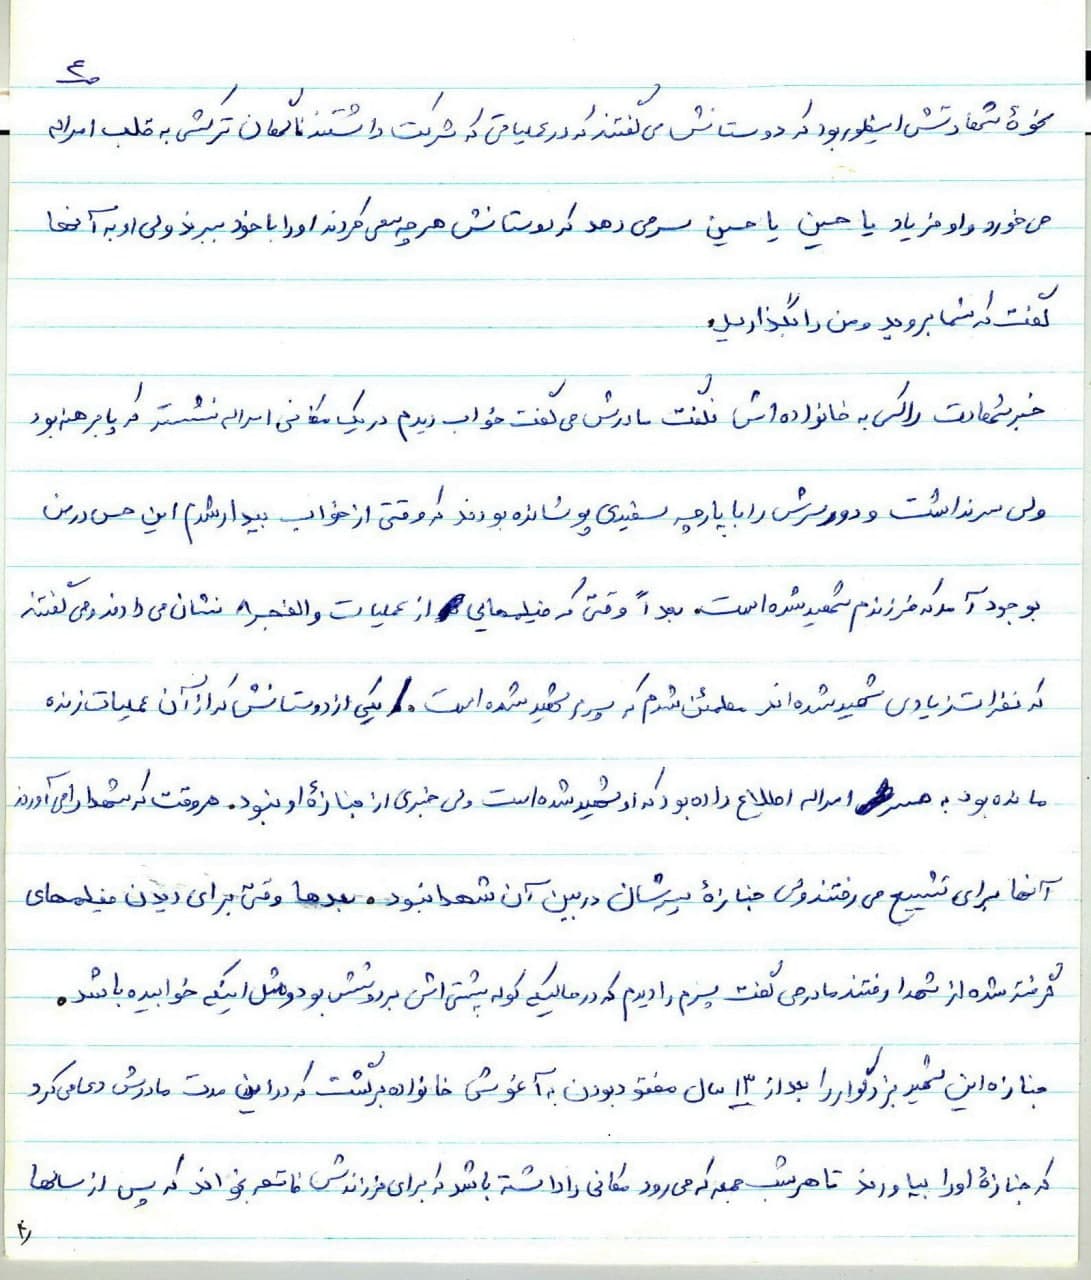 ص۴
نحوۀ شهادتش اینطور بود که دوستانش می گفتند که در عملیاتی که شرکت داشتند ناگهان ترکشی به قلب امراله
می خورد و او فریاد یا حسین یا حسین سر می دهد که دوستانش هر چه سعی کردند او را با خود ببرند ولی او به آنها
گفت که شما بروید و من را بگذارید.
خبر شهادت را کسی به خانواده اش نگفت مادرش می گفت خواب دیدم در یک مکانی امراله نشسته که پا برهنه بود
ولی سر نداشت و دور سرش را با پارچه سفیدی پوشانده بودند که وقتی از خواب بیدار شدم این حس در من
بوجود آمد که فرزندم شهید شده است. بعداً وقتی که فیلمهایی از عملیات والفجر ۸ نشان می دادند و می گفتند
که نفرات زیادی شهید شده اند مطمئن شدم که پسرم شهید شده است. یکی از دوستانش که از آن عملیات زنده
مانده بود به همسر امراله اطلاع داده بود که او شهید شده است ولی خبری از جنازۀ او نبود. هر وقت که شهدا را می آوردند
آنها برای تشییع می رفتند ولی جنازۀ پسرشان در بین آن شهدا نبود. بعدها وقتی برای دیدن فیلمهای
گرفته شده از شهدا رفتند مادر می گفت پسرم را دیدم که در حالیکه کوله پشتی اش بر دوشش بود و مثل اینکه خوابیده باشد.
جنازه این شهید بزرگوار را بعد از ۱۳ سال مفقود بودن به آغوش خانواده برگشت که در این مدت مادرش دعا می کرد
که جنازۀ او را بیاورند تا هر شب جمعه که می رود مکانی را داشته باشد که برای فرزندش فاتحه بخواند که پس از سالها